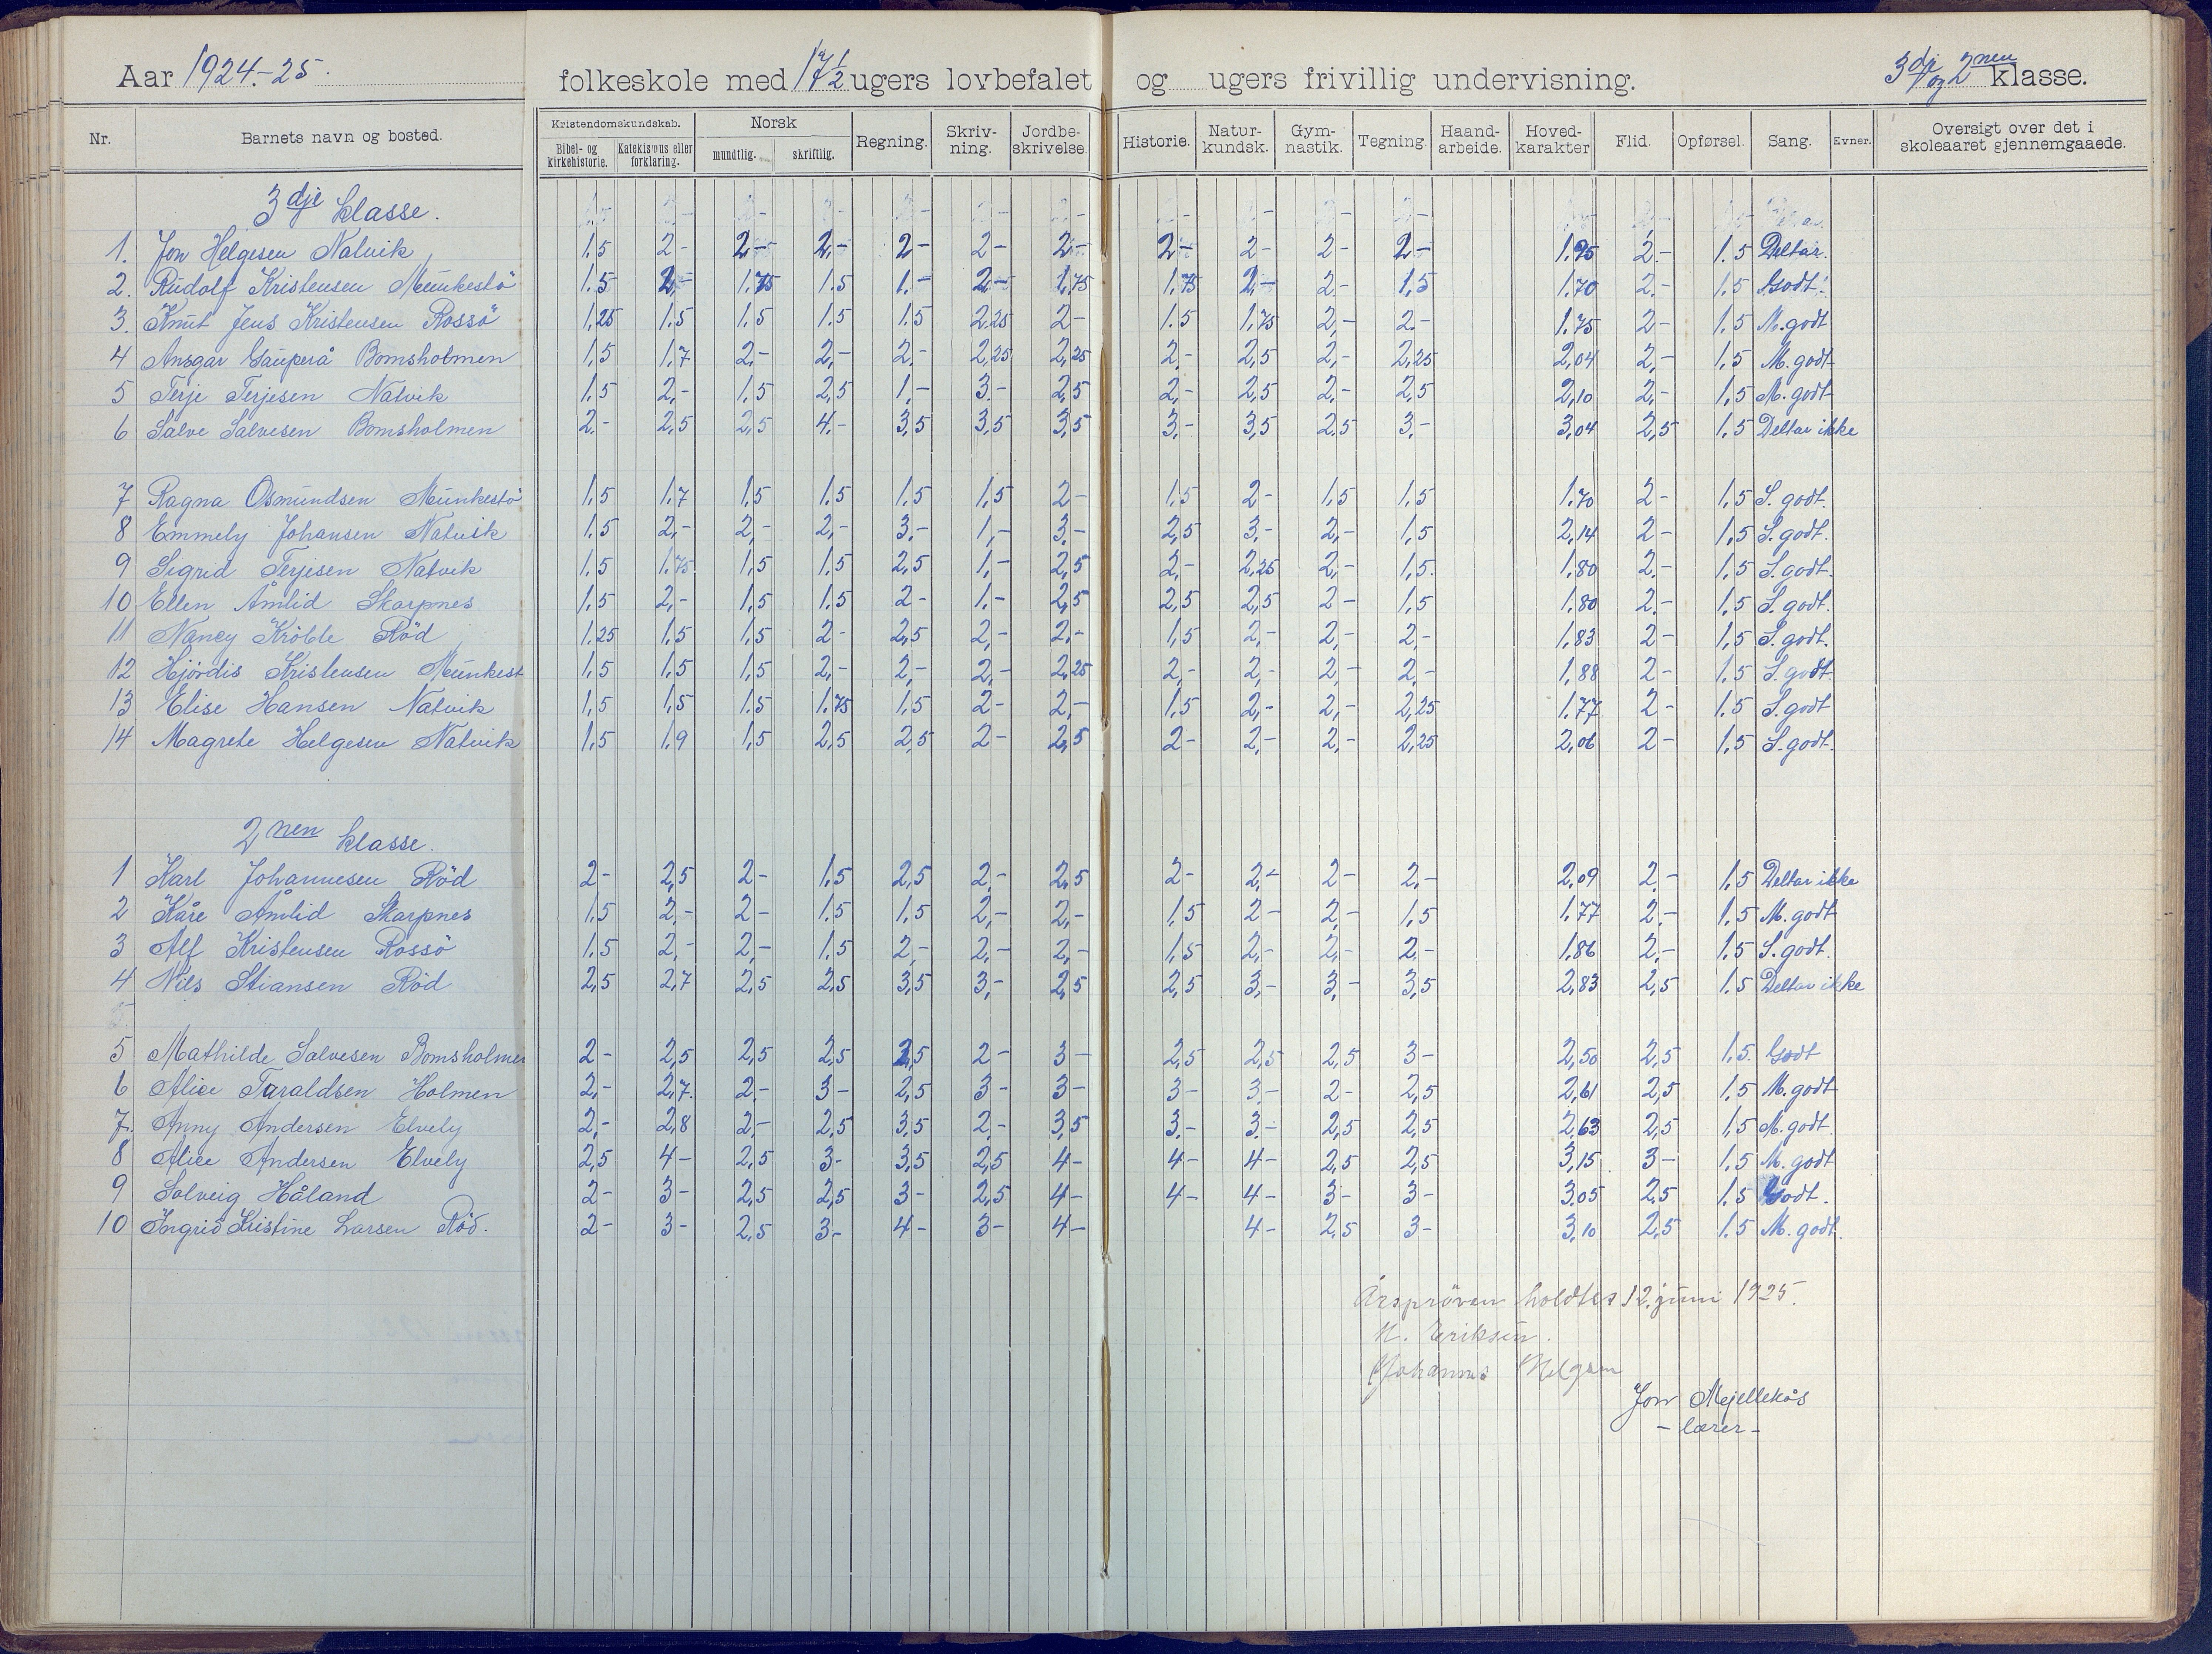 Aar 1924-25. folkeskole med 17 1/2 ugers lovbefalet og ugers frivillig undervisning. 3dje og 2nen klasse.
Nr. Barnets navn og bosted. Kristendomskundskab. Bibel- og kirkehistorie. Katekismus eller forklaring. Norsk mundtlig. skriftlig. Regning. Skriv-ning. Jordbe-skrivelse. Historie. Natur-kundsk. Gym-nastik. Tegning. Haand-arbeide. Hoved-karakter Flid. Opførsel. Sang. Evner. Oversigt over det i skoleaaret gjennemgaaede.
3dje klasse.
1. Jon Helgesen Natvik 1,5 2- 2,- 2,- 2- 2- 2,- 2,- 2- 2- 2,- 1.95 2.- 1.5 Deltar.
2. Rudolf Kristensen Munkestö 1.5 2,- 1.75 1.5 1.- 2,- 1,75 1,75 2,- 2.- 1,5 1.70 2.- 1.5 Godt.
3. Knut Jens Kristensen Rossö 1,25 1.5 1.5 1.5 1.5 2,25 2- 1.5 1,75 2,- 2.- 1.75 2- 1.5 M. godt
4 Ansgar Gauperå Bomsholmen 1,5 1,7 2,- 2,- 2,- 2,25 2,25 2,- 2,5 2,- 2,25 2,04 2,- 1,5 M. godt
5 Terje Terjesen Natvik 1.5 2,- 1,5 2,5 1,- 3.- 2,5 2,- 2,5 2,- 2,5 2,10 2,- 1,5 M. godt
6 Salve Salvesen Bomsholmen 2.- 2,5 2,5 4.- 3,5 3,5 3,5 3,- 3,5 2,5 3,- 3,04 2,5 1,5 Deltar ikke
7 Ragna Osmundsen Munkestö 1,5 1,7 1,5 1,5 1,5 1,5 2- 1,5 2- 1,5 1,5 1.70 2- 1,5 S. godt.
8 Emmely Johansen Natvik 1.5 2,- 2,- 2,- 3,- 1,- 3,- 2,5 3,- 2,- 1,5 2,14 2- 1,5 S. godt.
9 Sigrid Terjesen Natvik 1,5 1.75 1,5 1.5 2,5 1,- 2,5 2,- 2,25 2,- 1,5. 1,80 2.- 1,5 S. godt.
10 Ellen Åmlid Skarpnes 1,5 2,- 1,5 1.5 2- 1.- 2,5 2,5 2,5 2- 1,5 1,80 2.- 1,5 S. godt.
11 Nancy Kröble Röd 1.25 1,5 1,5 2- 2,5 2,- 2,- 1,5 2,- 2,- 2,- 1,83 2- 1,5 S. godt.
12 Hjördis Kristensen Munkest 1,5 1,5 1,5 2,- 2,- 2,- 2,25 2,- 2,- 2,- 2,- 1,88 2- 1.5 S. godt
13 Elise Hansen Natvik 1,5 1,5 1.5 1.75 1,5 2- 2,- 1,5 2,- 2,- 2,25 1.77 2- 1.5 S. godt
14 Magrete Helgesen Natvik 1,5 1,9 1,5 2,5 2,5 2- 2,5 2- 2,- 2,- 2,25 2,06 2- 1,5 S. godt.
2nen klasse.
1 Karl Johannesen Röd 2- 2,5 2- 1.5 2,5 2,- 2,5 2- 2,- 2- 2,- 2,09 2.- 1,5 Deltar ikke
2 Kåre Åmlid Skarpnes 1,5 2,- 2- 1.5 1,5 2,- 2,- 1,5 2- 2,- 1,5 1.77 2,- 1.5 M. godt
3 Alf Kristensen Rossö 1.5 2,- 2,- 1.5 2,- 2,- 2,- 1,5 2,- 2,- 2,- 1.86 2,- 1.5 S. godt.
4 Nils Stiansen Röd 2,5 2,7 2,5 2,5 3,5 3,- 2,5 2,5 3,- 3,- 3,5 2,83 2,5 1.5 Deltar ikke
5 Mathilde Salvesen Bomsholmen 2- 2,5 2,5 2,5 2,5 2- 3- 2,5 2,5 2,5 3- 2,50 2,5 1.5. Godt
6 Alice Taraldsen Holmen 2,- 2,7. 2,- 3- 2,5 3- 3- 3- 3,- 2- 2,5 2,61 2,5 1.5 M. godt
7. Anny Andersen Elvely 2,- 2,8 2,- 2,5 3,5 2,- 3,5 3,- 3,- 2,5 2,5 2,63 2,5 1,5 M. godt.
8 Alice Andersen Elvely 2,5 4- 2,5 3- 3,5 2,5 4- 4- 4- 2,5 2,5 3,15 3- 1,5 M. godt
9 Solveig Håland 2- 3- 2,5 2,5 3- 2,5 4- 4- 4- 3- 3- 3.05 2,5 1.5 Godt.
10 Ingrid Kristine Larsen Röd. 2- 3- 2,5 3- 4- 3- 4- 4- 2,5 3- 3,10 2,5 1.5 M. godt.
Årspröven holdtes 12. juni 1925.
N. Eriksen.
Johannes Helgesen
Jon Mjellekås
- lærer -